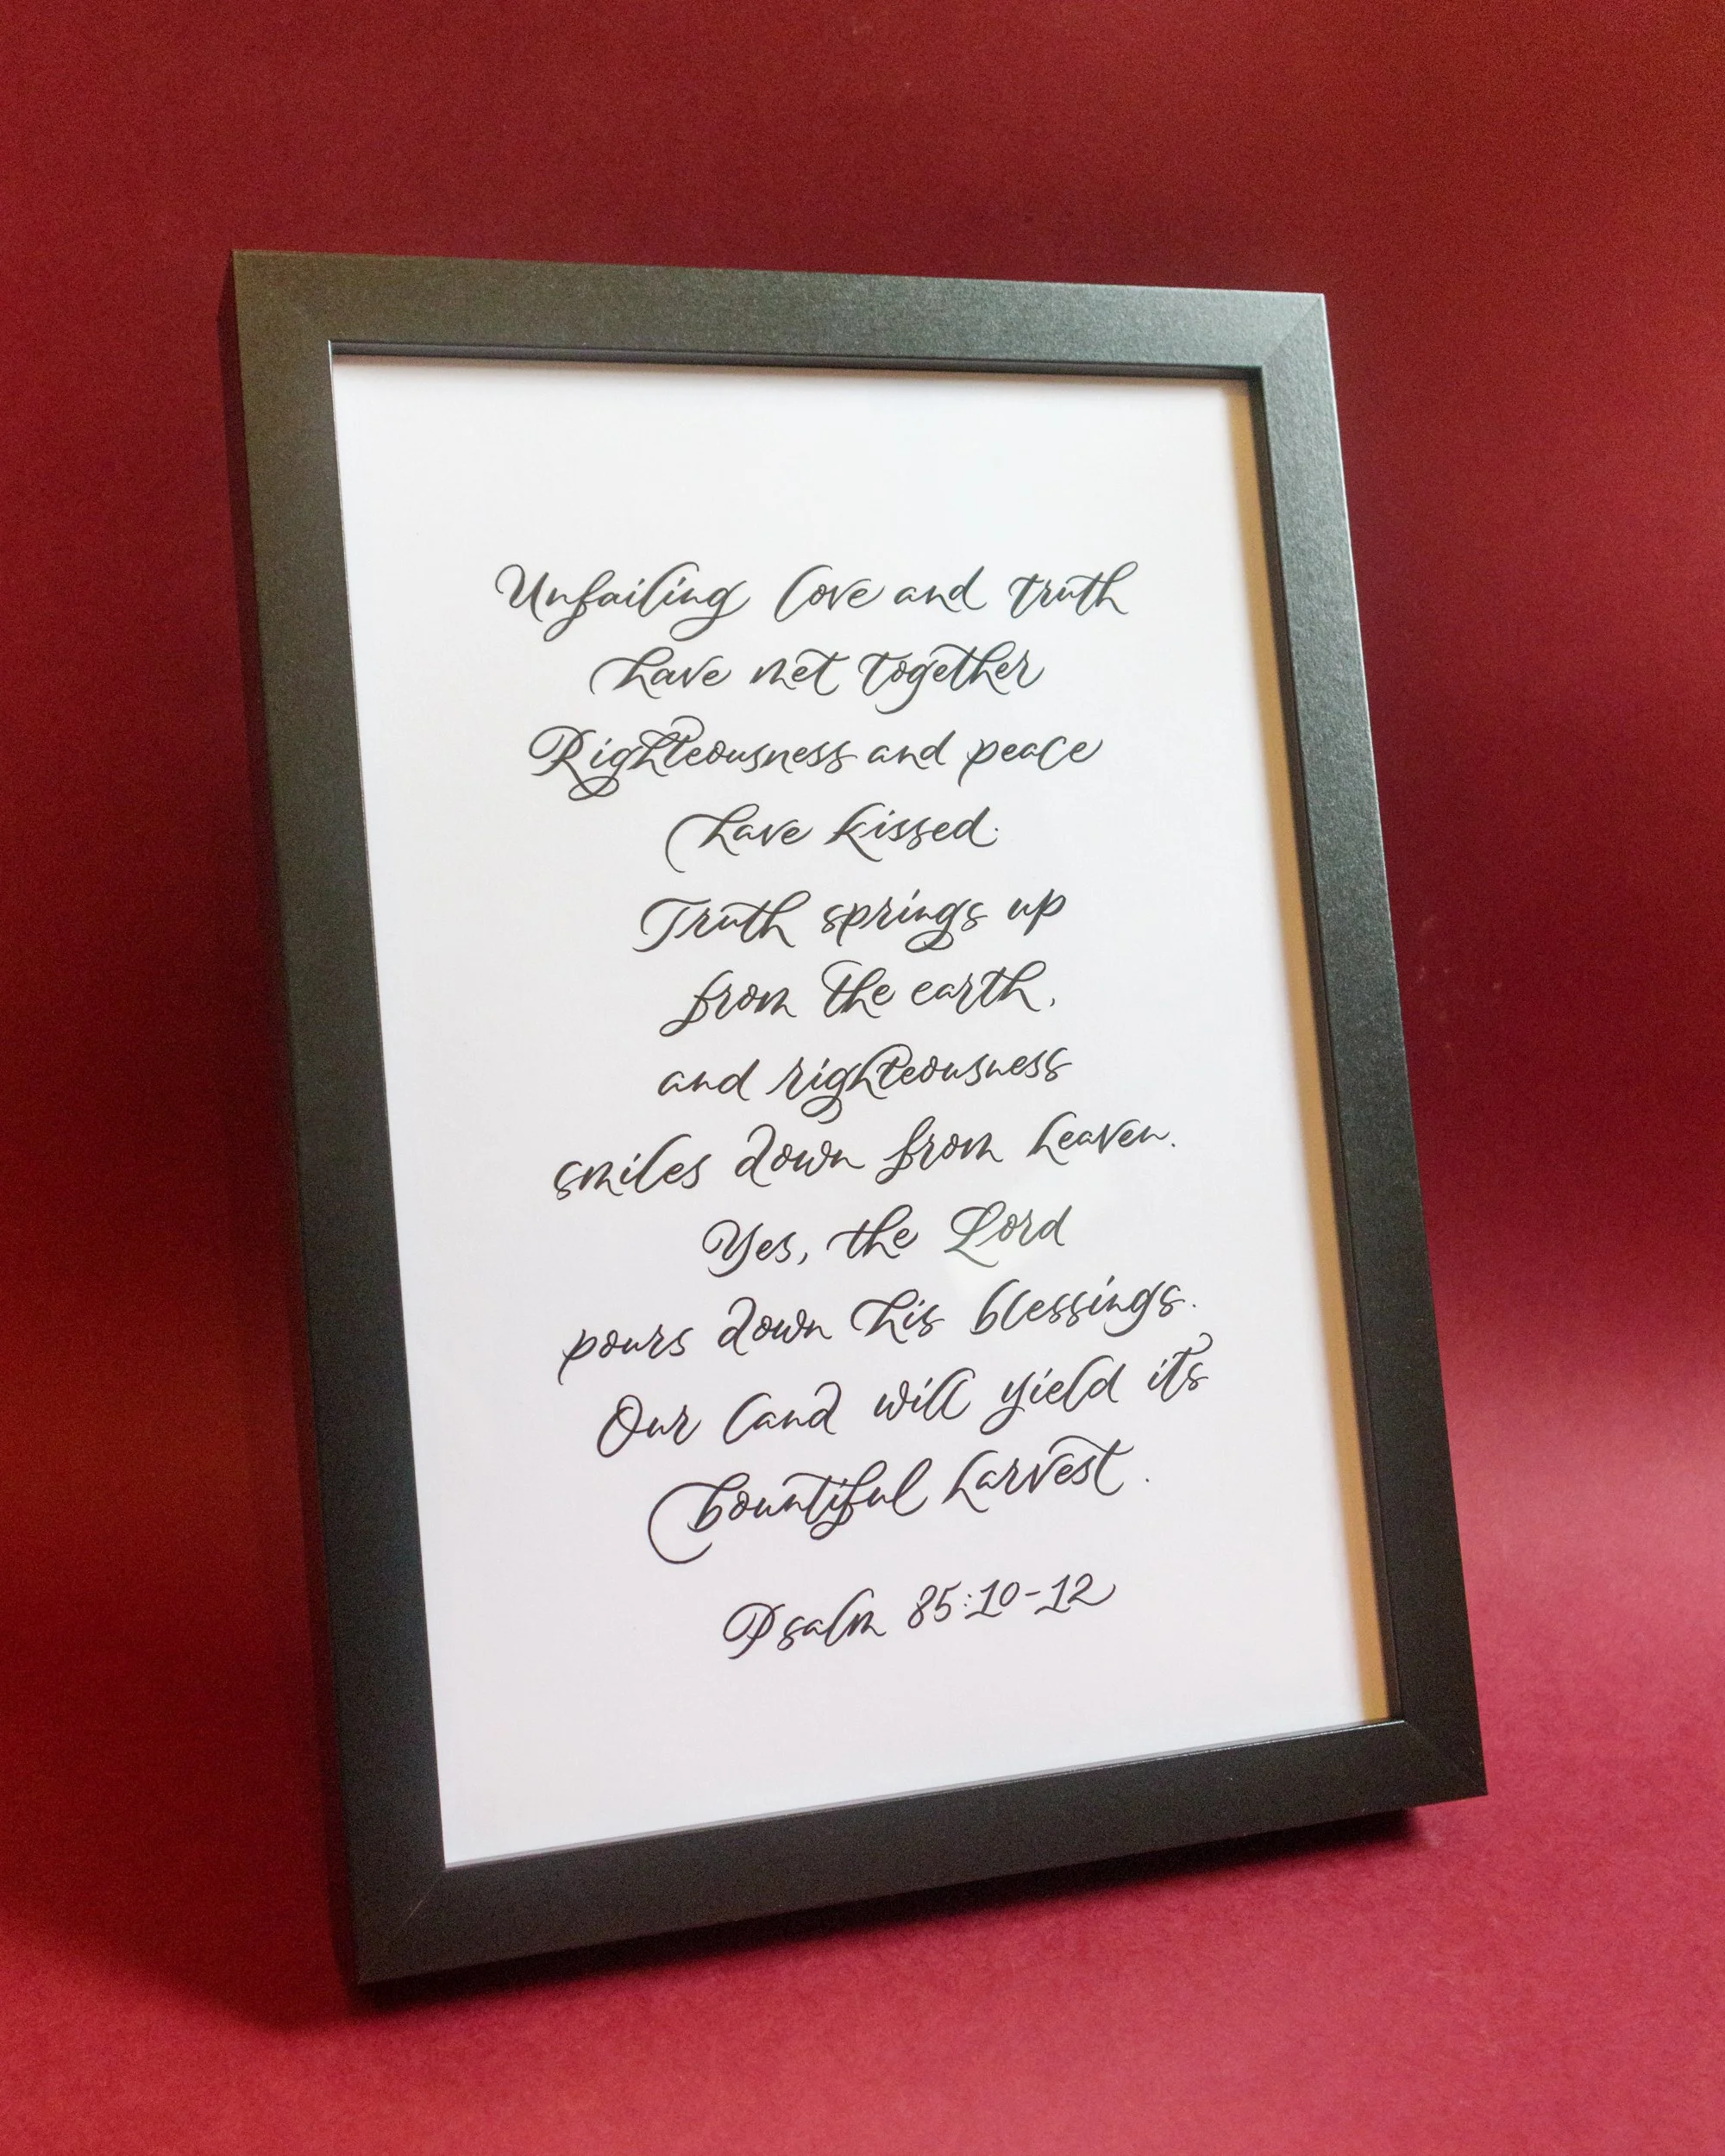 Unfailing love and truth
have met together
Righteousness and peace
have kissed.
Truth springs up
from the earth,
and righteousness
smiles down from heaven.
Yes, the Lord
pours down his blessings.
Our land will yield its
bountiful harvest.
Psalm 85:10-12